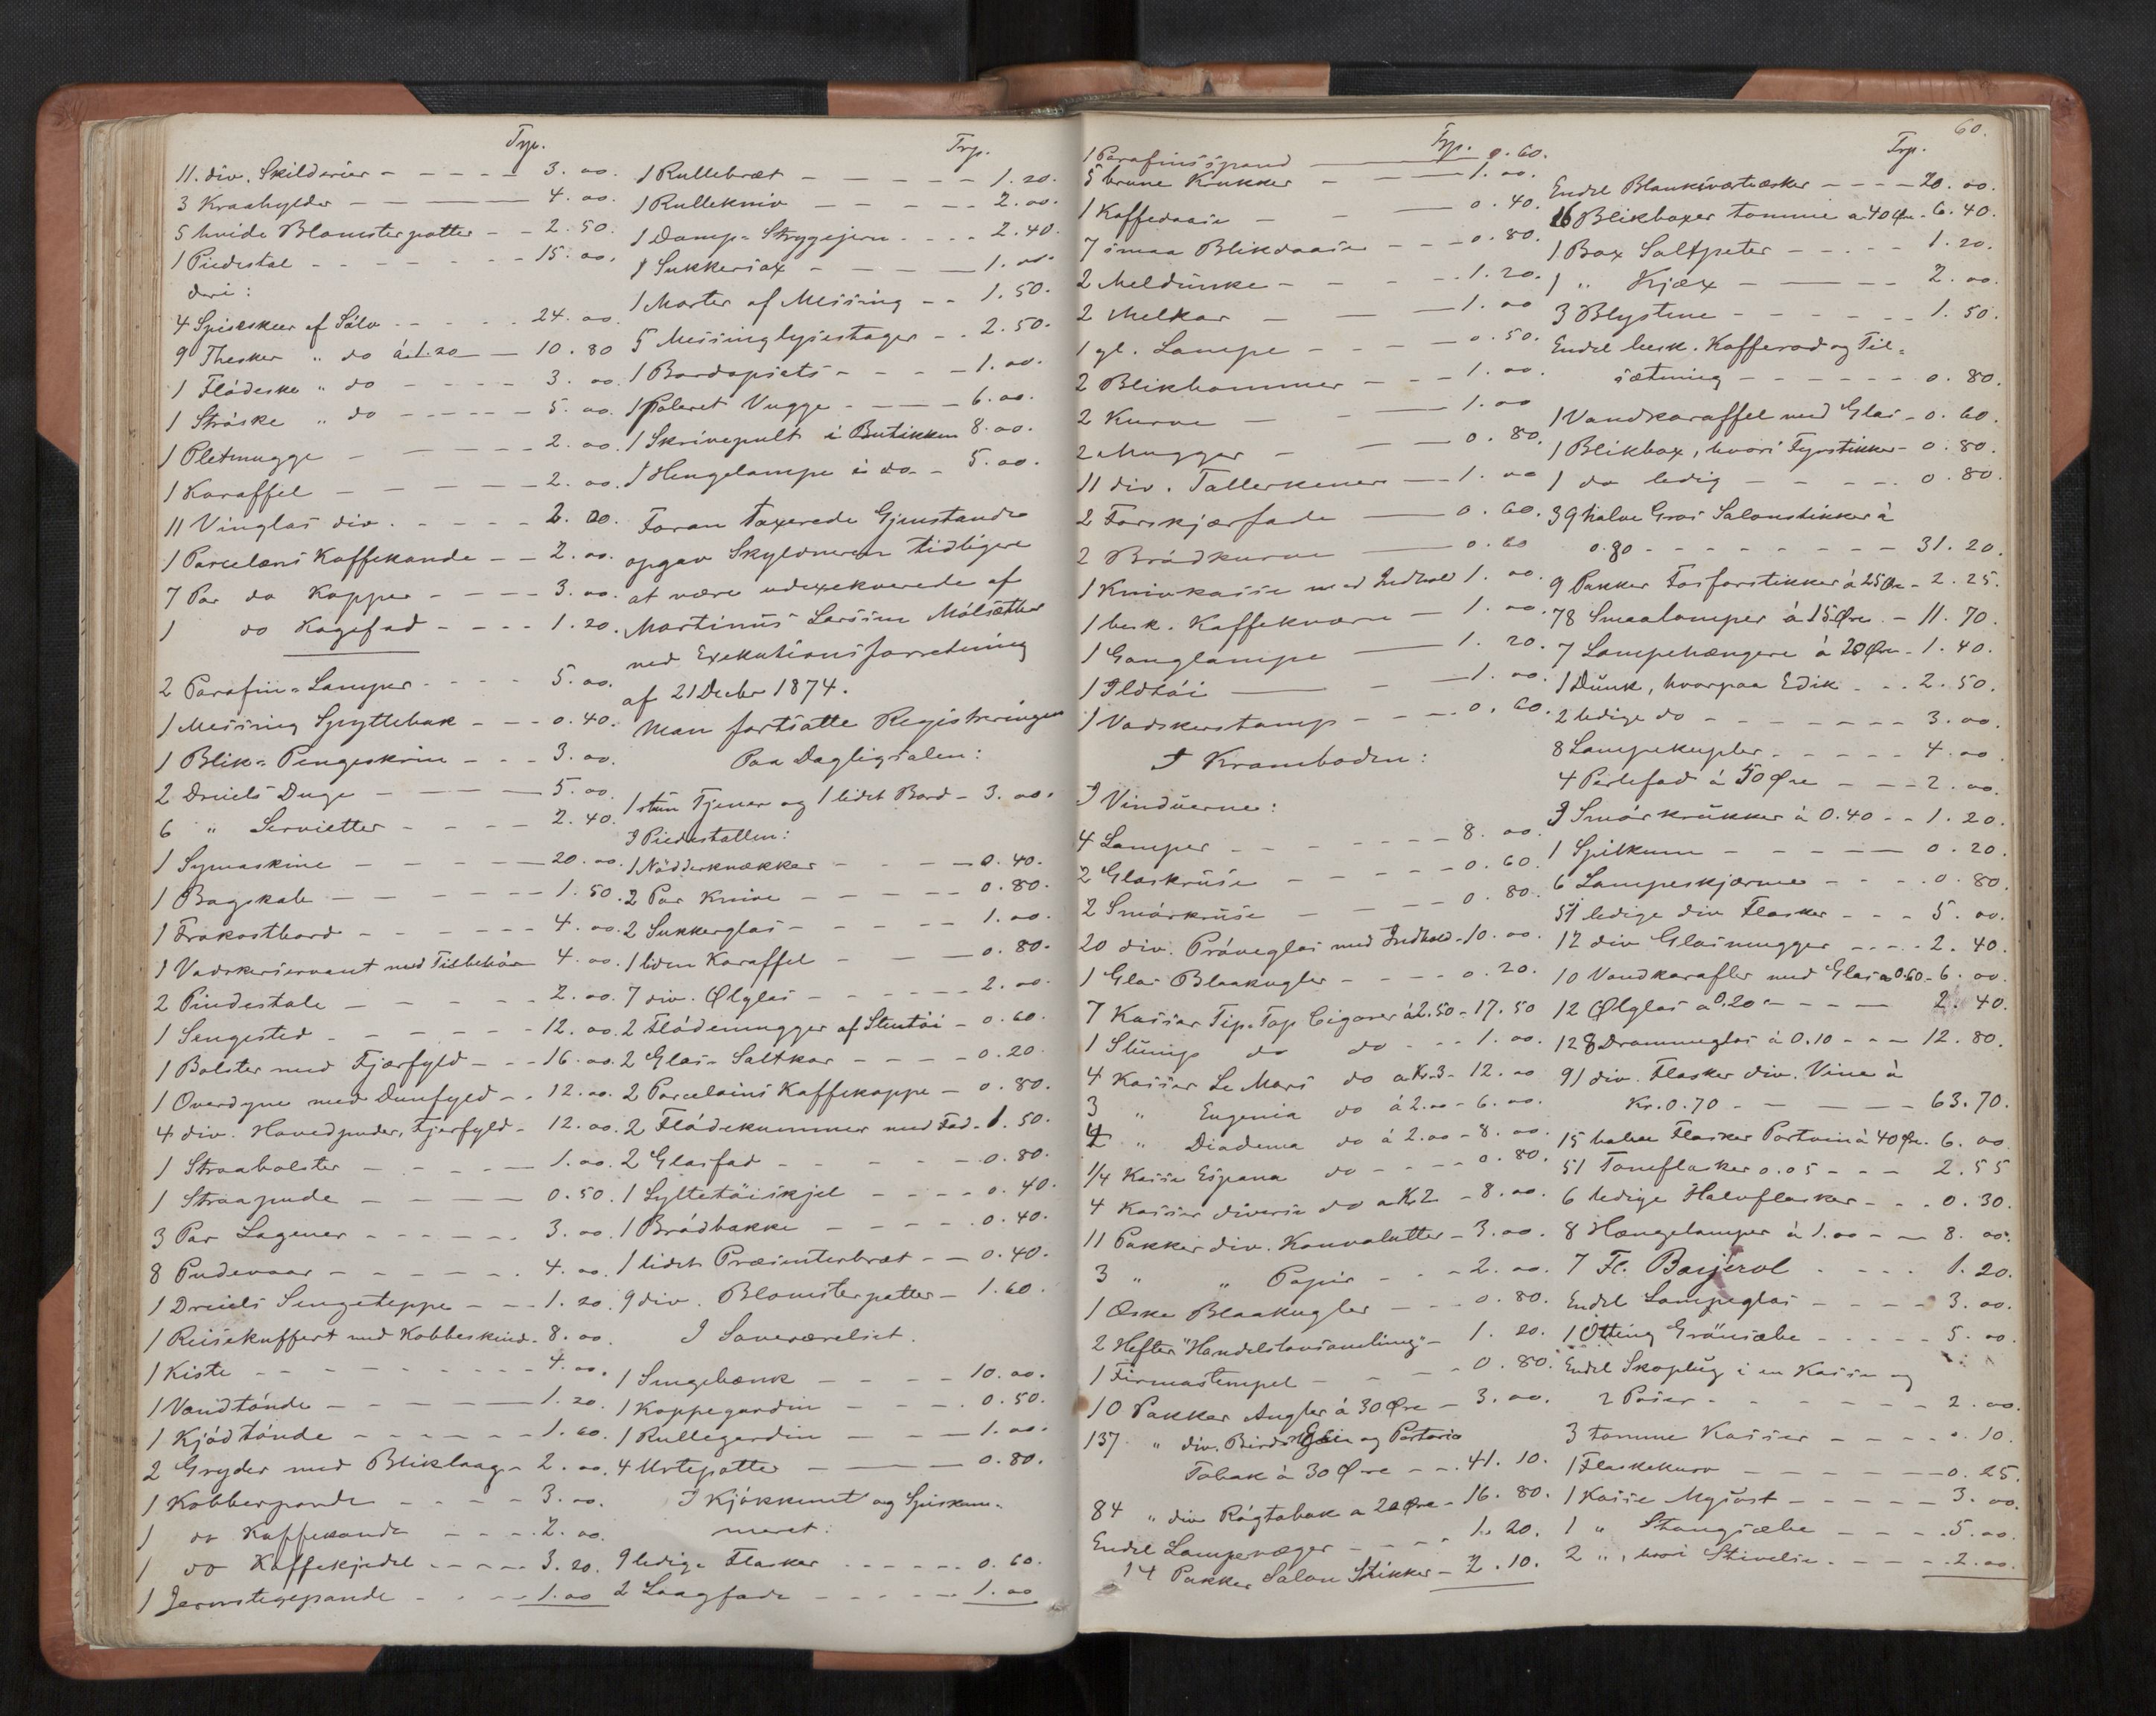 Trp.
11. div. Skilderier - - - - - 3. 00.
3 Kraahylder - - - - 4. 00.
5 hvide Blomsterpotter - - 2. 50.
1 Piedestal - - - - - - 15. 00.
deri:
4 Spiseskeer af Sölv - - - - 24. 00.
9 Theskeer " do á 1.20 - - 10. 80
1 Flödeske " do - - - - 3. 00.
1 Ströske " do - - - - - 5. 00.
1 Pletmugge - - - - - 2. 00.
1 Karaffel - - - - - 2. 00.
11 Vinglas div. - - - - 2. 00.
1 Porcelæns Kaffekande - - 2. 00.
7 Par do Kopper - - - - 3. 00.
1 do Kagefad - - - - 1. 20.
2 Parafin-Lamper - - - - 5. 00.
1 Messing Spyttebak - - - 0. 40.
1 Blik-Pengeskrin - - - 3. 00.
2 Dreiels Duge - - - - 5. 00.
6 " Servietter - - - - 2. 40.
1 Symaskine - - - - - 20. 00.
1 Bogskab - - - - - 1. 50.
1 Frokostbord - - - - - - 4. 00.
1 Vadskerservant med Tilbehör 4. 00.
2 Piedestale - - - - - 2. 00.
1 Sengested - - - - - - 12. 00.
1 Bolster med Fjærfyld - - - 16. 00.
1 Overdyne med Dunfyld - - 12. 00.
4 div. Hovedputer, Fjerfyld - 12. 00.
1 Straabolster - - - - - - 1. 00.
1 Straapude - - - - - 0. 50.
3 Par Lagener - - - - - - 3. 00.
8 Pudevaar - - - - - - 4. 00.
1 Dreiels Sengeteppe - - - 1. 20.
1 Reisekuffert med Kobbeskind - 8. 00.
1 Kiste - - - - - - - - 4. 00.
1 Vandtönde - - - - - - 1. 20.
1 Kjödtönde - - - - - - 1. 60.
2 Gryder med Bliklaag - 2. 00.
1 Kobberpande - - - - 3. 00.
1 do Kaffekande - - - 2. 00.
1 do Kaffekjedel - - - - 3. 20.
1 Jernstegepande - - - - 1. 00
Trp.
1 Rullebræt - - - - - - 1. 20.
1 Rullekniv - - - - - 2. 00.
1 Damp-Strygejern - - - - 2. 40.
1 Sukkersax - - - - - 1. 00.
1 Morter af Messing - - 1. 50.
5 Messinglysestager - - 2. 50.
1 Bordopsats - - - - - 1. 00.
1 Poleret Vugge - - - - 6. 00.
1 Skrivepult i Butikken 8. 00.
1 Hengelampe i do - 5. 00.
Foran taxerede Gjenstande
opgav Skyldneren tidligere
at være udexekverede af
Martinus Larssen Mölsæther
ved Exekutionsforretning
af 21 Decbr 1874.
Man fortsatte Registreringen
Paa Dagligsalen:
1 stum Tjener og 1 lidet Bord - 3. 00.
I Piedestallen:
1 Nödderknækker - - - - 0. 40.
2 Par Knive - - - - 0. 80.
2 Sukkerglas - - - - - 1. 00.
1 liden Karaffel - - - 0. 80.
7 div. Ølglas - - - - - 2. 00.
2 Flödemugger af Stentöi - 0. 60.
2 Glas-Saltkar - - - - 0. 20
2 Porcelains Kaffekoppe - 0. 80.
2 Flödekummer med Fad - 1. 50.
2 Glasfad - - - - - - 0. 80.
1 Syltetöiskjel - - - - 0. 40.
1 Brödbakke - - - - - 0. 40.
1 lidet Præsenterbræt - - 0. 40.
9 div. Blomsterpotter - 1. 60.
I Soveværelset.
1 Sengebænk - - - - 10. 00.
1 Kappegardin - - - - 0. 50.
1 Rullegardin - - - - 1. 00.
4 Urtepotter - - - - 0. 80.
I Kjökkenet og Spiskam-
meret:
9 ledige Flasker - - - - - 0. 60.
2 Laagfade - - - - - - 1. 00
60.
Trp.
1 Parafinsspand - - - - 0. 60.
5 brune Krukker - - - 1. 00.
1 Kaffedaase - - - 0. 40.
7 smaa Blikdaaser - - - 0. 80.
2 Meldunke - - - - - 1. 20.
2 Melkar - - - - 1. 00
1 gl. Lampe - - - - 0. 50.
2 Blikkommer - - - 1. 00.
2 Kurve - - - 1. 00
2 Mugger - - - 0. 80.
11 div. Tallerkener - - 1. 00
2 Forskjærfade - - 0. 60.
2 Brödkurve - - 0. 60
1 Knivkasse med Indhold 1. 00.
1 besk. Kaffekværn - 1. 00.
1 Ganglampe - - 1. 20.
1 Ildtöi - - - 1. 00.
1 Vadskerstamp - - - - 0. 60.
I Kramboden:
I Vinduerne:
4 Lamper - - - - - - 8. 00.
2 Glaskruse - - - - - 0. 60.
2 Smörkruse - - - - 0. 80.
20 div. Pröveglas med Indhold - 10. 00.
1 Glas Blaakugler - - - 0. 20.
7 Kasser Tip-Top Cigarer á 2.50 - 17. 50
1 Slump do do - - - 1. 00.
4 Kasser Le Mars do a Kr. 3 - 12. 00
3 " Eugenia do á 2.00 - 6. 00.
4 " Diadema do á 2.00 - 8. 00.
1/4 Kasse Espana do - - - 0. 80.
4 Kasser diverse do a Kr 2 - 8. 00.
11 Pakker div. Konvolutter - 3. 00.
3 " " Papir - - - 2. 00.
1 Æske Blaakugler - - - 0. 80.
2 Hefter "Handelslovsamling" - 1. 20.
1 Firmastempel - - - - 0. 80.
10 Pakker Angler á 30 Øre - 3. 00.
137 " div. Birds Eie og Portorico
Tobak á 30 Øre - - 41. 10.
84 " div Rögtobak a 20 Øre - 16. 80.
Endel Lampevæger - - - - 1. 20.
14 Pakker Salon Stikker - 2. 10.
Trp.
Endel Blanksværtæsker - - - - 20. 00.
16 Blikboxer tomme a 40 Øre - 6. 40.
1 Box Saltpeter - - - - - 1. 20.
1 " Kjæx - - - - 2. 00.
3 Blystene - - - - - - 1. 50.
Endel besk. Kafferod og Til-
sætning - - - - - - 0. 80.
1 Vandkaraffel med Glas - 0. 60.
1 Blikbox, hvori Fyrstikker - 0. 80.
1 do ledig - - - - - 0. 80.
39 halve Gros Salonstikker á
0.80 - - - - - - - - 31. 20.
9 Pakker Fosforstikker á 25 Øre - 2. 25.
78 Smaalamper á 15 Øre - 11. 70.
7 Lampehængere á 20 Øre - 1. 40.
1 Dunk, hvorpaa Edik - - - 2. 50.
2 ledige do - - - - - - - 3. 00.
8 Lampekupler - - - - - 4. 00
4 Perlefad á 50 Øre - - - 2. 00.
3 Smörkrukker á 0.40 - - 1. 20.
1 Spilkum - - - - - 0. 20.
6 Lampeskjærme - - - 0. 80.
51 ledige div Flasker - - - 5. 00.
12 div Glasmugger - - - - 2. 40.
10 Vandkarafler med Glas a 0.60 - 6. 00.
12 Ølglas a 0.20 - - - - 2. 40.
128 Drammeglas á 0.10 - - - 12. 80.
91 div. Flasker div. Vine á
Kr. 0.70 - - - - 63. 70.
15 halve Flasker Portvin á 40 Øre. 6. 00
51 Tomflasker 0.05 - - - 2. 55
6 ledige Halvflasker - - - 0. 30.
8 Hængelamper á 1.00 - - 8. 00.
7 Fl. Baijerøl - - - - 1. 20.
Endel Lampeglas - - - - 3. 00.
1 Otting Grönsæbe - - - - - 5. 00.
Endel Skoplug i en Kasse og
2 Poser - - - - - - - 2. 00.
3 tomme Kasser - - - - 0. 10.
1 Flaskekurv - - - - - - 0. 25.
1 Kasse Mysost - - - - - 3. 00.
1 " Stangsæbe - - - - 5. 00.
2 ", hvori Stivelse - - - - 2. 00.